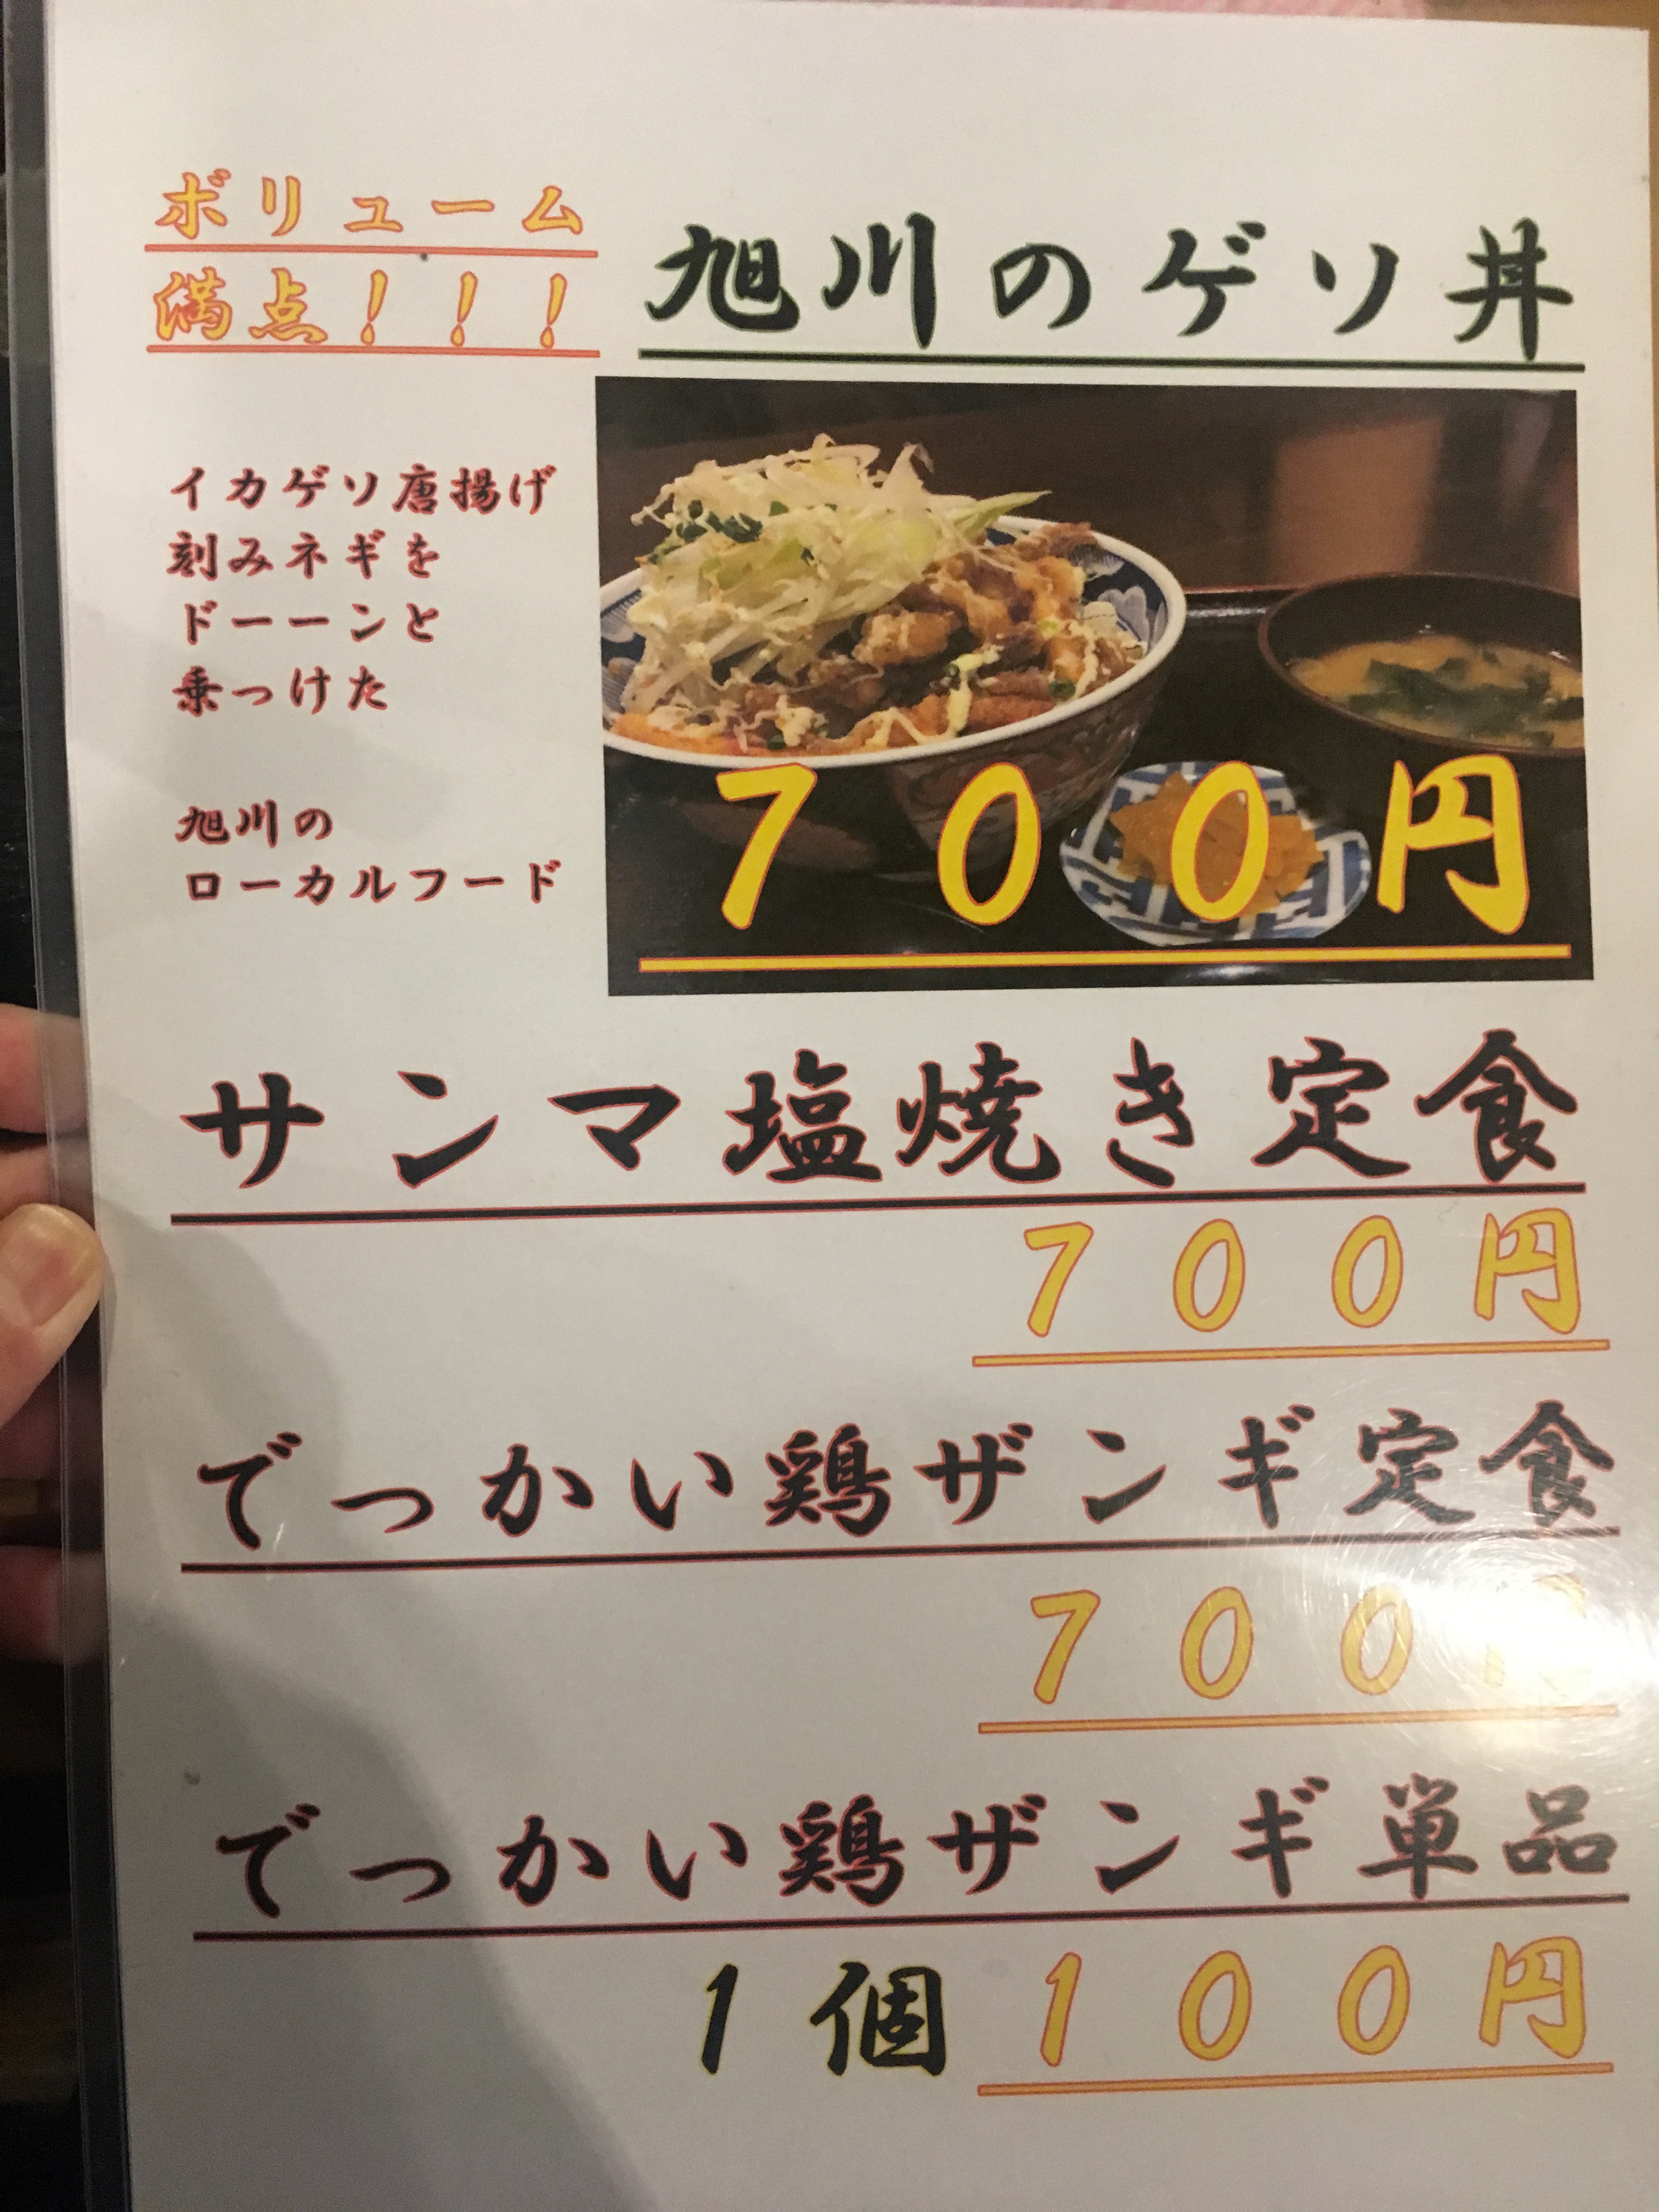 ボリューム
満点！！！
旭川のゲソ丼
イカゲソ唐揚げ
刻みネギを
ドーーンと
乗っけた
旭川の
ローカルフード
７００円
サンマ塩焼き定食
７００円
でっかい鶏ザンギ定食
７００円
でっかい鶏ザンギ単品
１個１００円